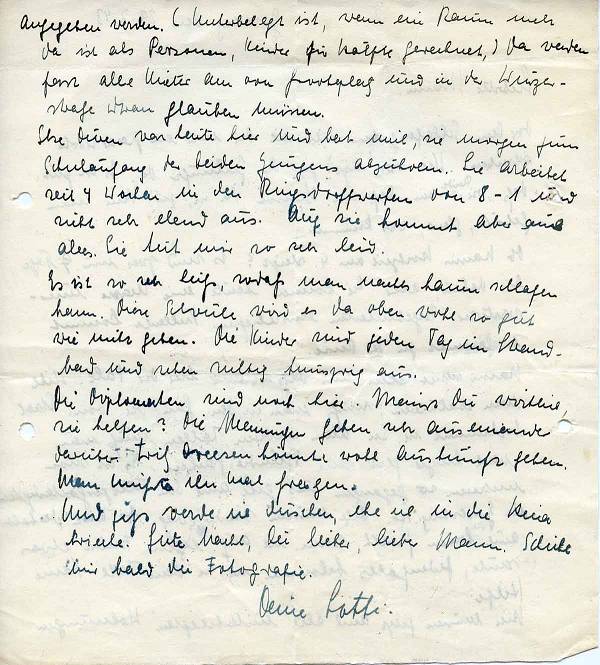 angegeben werden. (Unterbelegt ist, wenn ein Raum mehr
da ist als Personen, Kinder für Hälfte gerechnet,) Da werden
fast alle Mieter am von und in der Winzer-
straße daran glauben müssen.
war heute hier und bat mich, sie morgen zum
Schulanfang der beiden Jungens abzuholen. Sie arbeitet
seit 4 Wochen in den Ringsdorffwerken von 8-1 und
sieht sehr elend aus. Auf sie kommt aber auch
alles. Sie tut mir so sehr leid.
Es ist so sehr heiß, sodaß man nachts kaum schlafen
kann. Diese Schwüle wird es da oben wohl so gut
wie nicht geben. Die Kinder sind jeden Tag im Strand-
bad und sehen richtig knusprig aus.
Die Diplomaten sind noch hier. Meinst Du wirklich,
sie helfen? Die Meinungen gehen sehr auseinander
darüber. Fritz Dreesen könnte wohl Auskunft geben.
Man müßte ihn mal fragen.
Und jetzt werde ich duschen, ehe ich in die Heia
krieche. Gute Nacht, Du lieber, lieber Mann. Schicke
mir bald die Fotografie.
Deine Lotte.